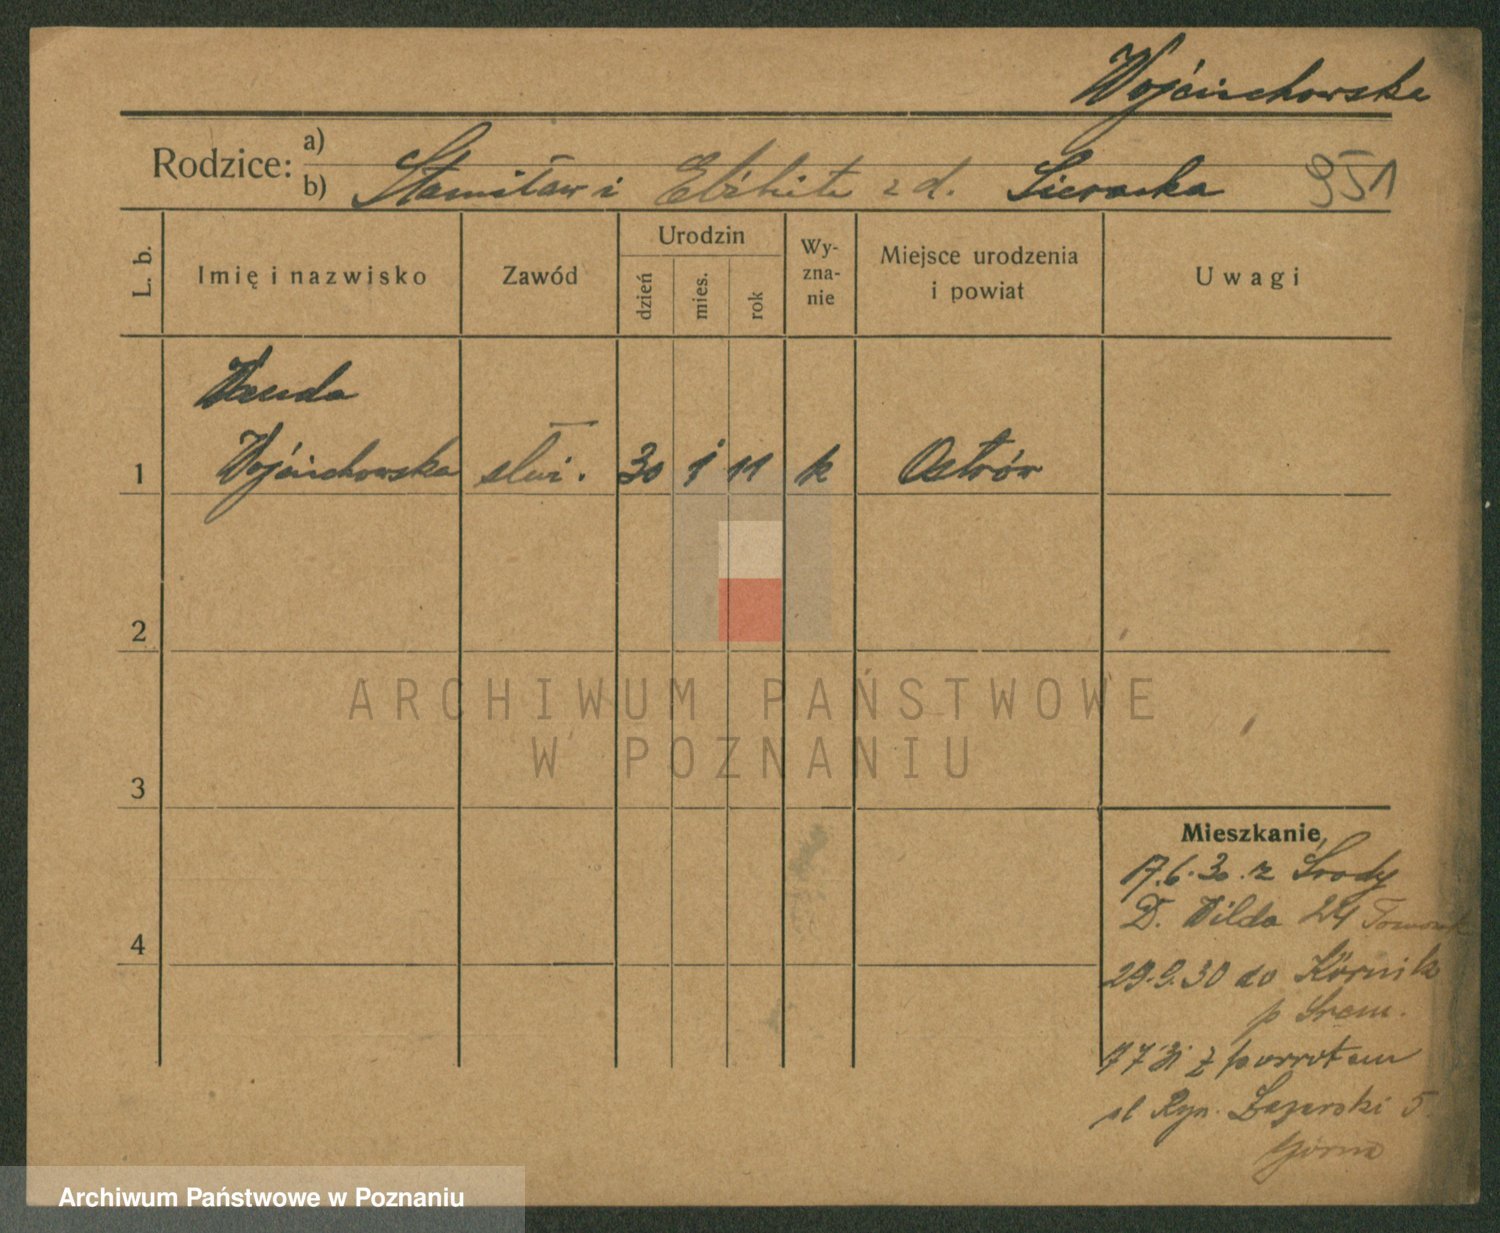 Wojciechowska
Rodzice:
a)
b) Stanisław i Elżbieta z d. Sieracka 951
L. b.
Imię i nazwisko
Zawód
Urodzin
dzień
mies.
rok
Wy-
zna-
nie
Miejsce urodzenia
i powiat
Uwagi
Wanda
1 Wojciechowska służ. 30 1 11 k Ostrów
2
3
4
ARCHIWUM PAŃSTWOWE
W POZNANIU
Mieszkanie
17.6.30. z Środy
D. Wilda 24
29.9.30 do Kórnik
p Śrem.
7 7 31 z powrotem
Ryn. Łazarski 5.
Górna
Archiwum Państwowe w Poznaniu